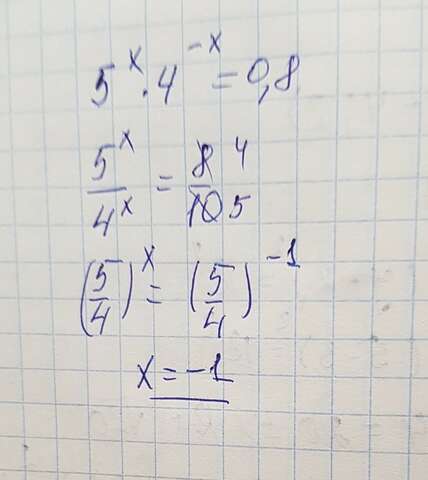 5^x · 4^{-x} = 0,8
5^x / 4^x = 8/10 4/5
(5/4)^x = (5/4)^{-1}
x = -1